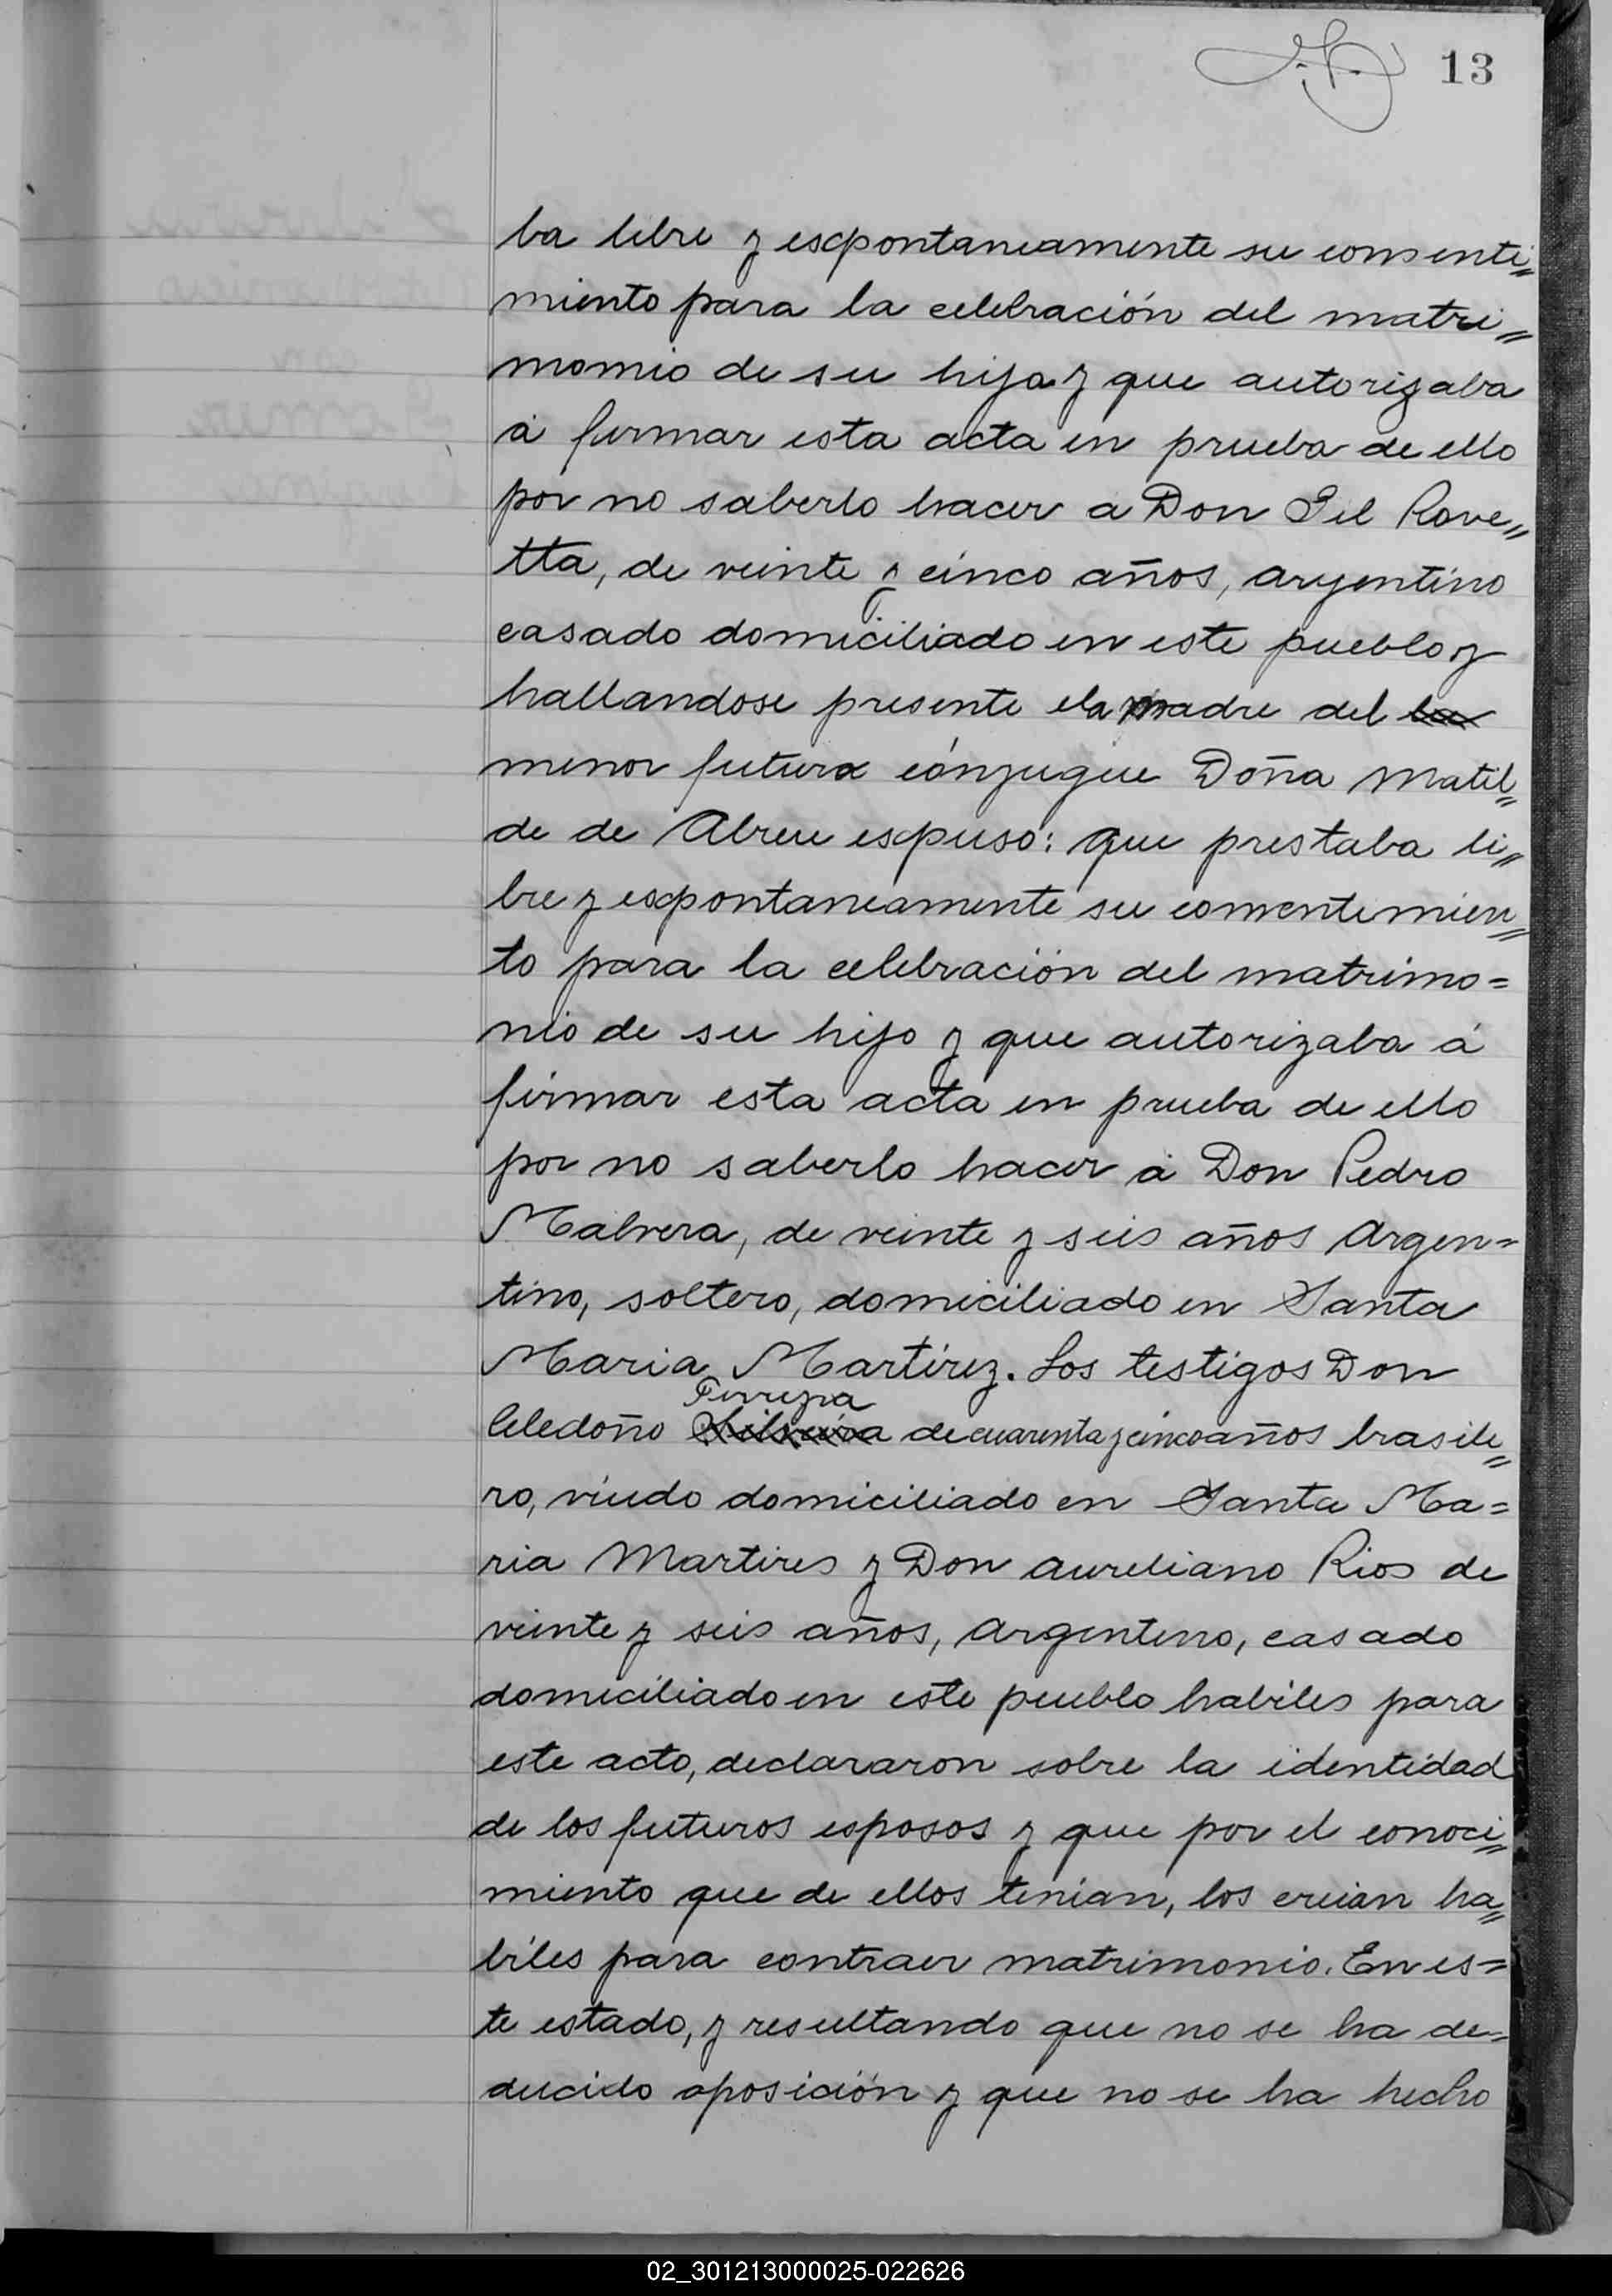 13
ba libre y espontaneamente su consenti=
miento para la celebración del matri=
monio de su hija y que autorizaba
á firmar esta acta en prueba de ello
por no saberlo hacer a Don Gil Rove=
tta, de veinte y cinco años, argentino
casado domiciliado en este pueblo y
hallandose presente ela madre del la
menor futura cónyugue Doña Matil=
de de Abreu espuso: que prestaba li=
bre y espontaneamente su consentimien=
to para la celebración del matrimo=
nio de su hijo y que autorizaba á
firmar esta acta en prueba de ello
por no saberlo hacer á Don Pedro
Malvera, de veinte y seis años Argen=
tino, soltero, domiciliado en Santa
Maria Martirez. Los testigos Don
Ferreyra
Celedoño Silveira de cuarenta y cinco años brasile=
ro, viudo domiciliado en Santa Ma=
ria Martires y Don Aureliano Rios de
veinte y seis años, Argentino, casado
domiciliado en este pueblo habiles para
este acto, declararon sobre la identidad
de los futuros esposos y que por el conoci=
miento que de ellos tenian, los creian ha=
biles para contraer matrimonio. En es=
te estado, y resultando que no se ha de=
ducido oposición y que no se ha hecho
02_301213000025-022626